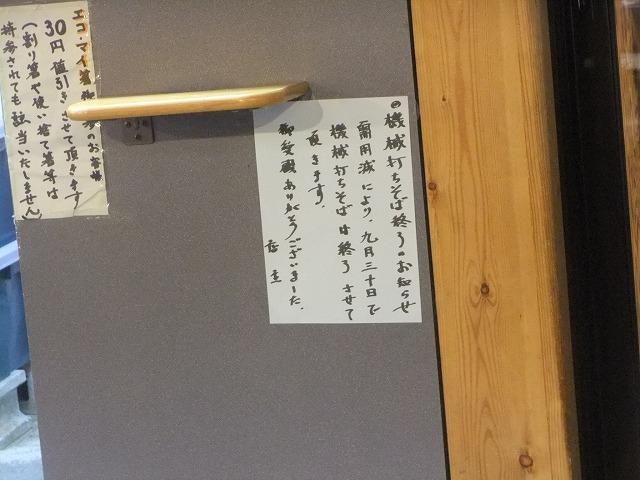 ◎機械打ちそば終了のお知らせ
需用減により、九月三十日で
機械打ちそばは終了させて
頂きます。
御愛顧ありがとうございました。
店主
エコ・マイ箸御持参のお客様
30円値引きさせて頂きます
(割り箸や使い捨て箸等は
持参されても該当いたしません)